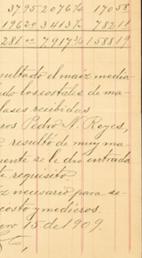 3795 2076¾ 17058
1962 0 3413¾ 78211
281 7917¾ 158819
sultado el maiz media
do los costales de ma
lases recibidas
sos Pedro N. Reyes,
resultó de muy ma
ente se le dió entrada
requisito
necesario para se
costo y medieros.
ero 15 de 1909.